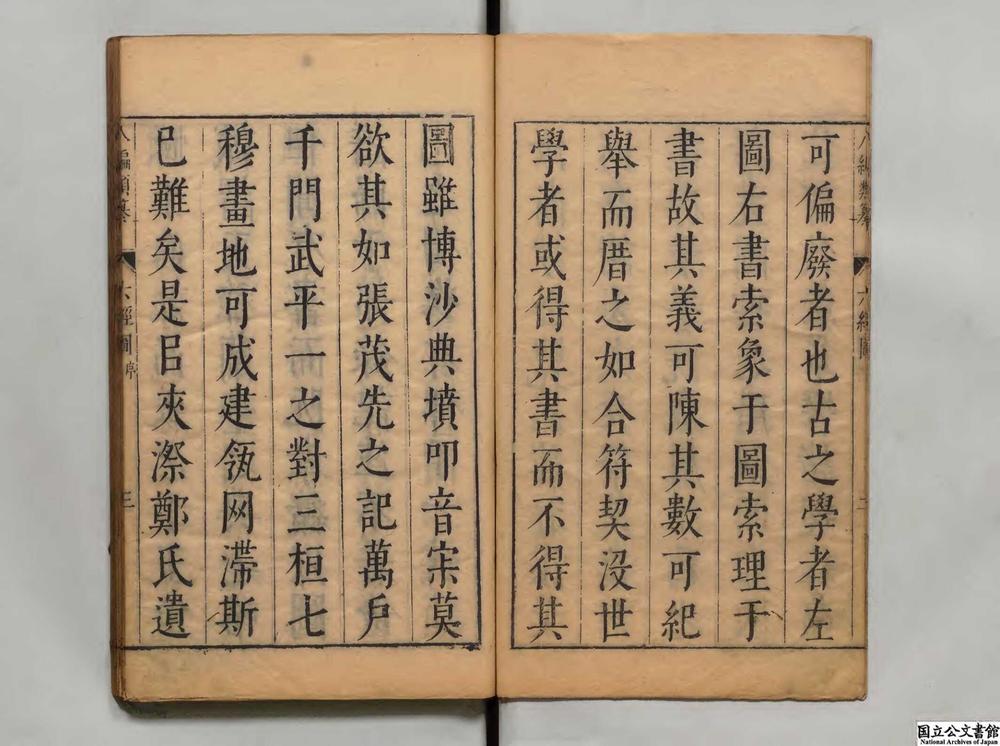 可偏廢者也古之學者左
圖右書索象于圖索理于
書故其義可陳其數可紀
舉而厝之如合符契没世
學者或得其書而不得其
圖雖博沙典墳叩音宋莫
欲其如張茂先之記萬戶
千門武平一之對三桓七
穆畫地可成建瓴网滯斯
已難矣是㠯夾漈鄭氏遺
八編類纂 六經圖序 三
国立公文書館
National Archives of Japan